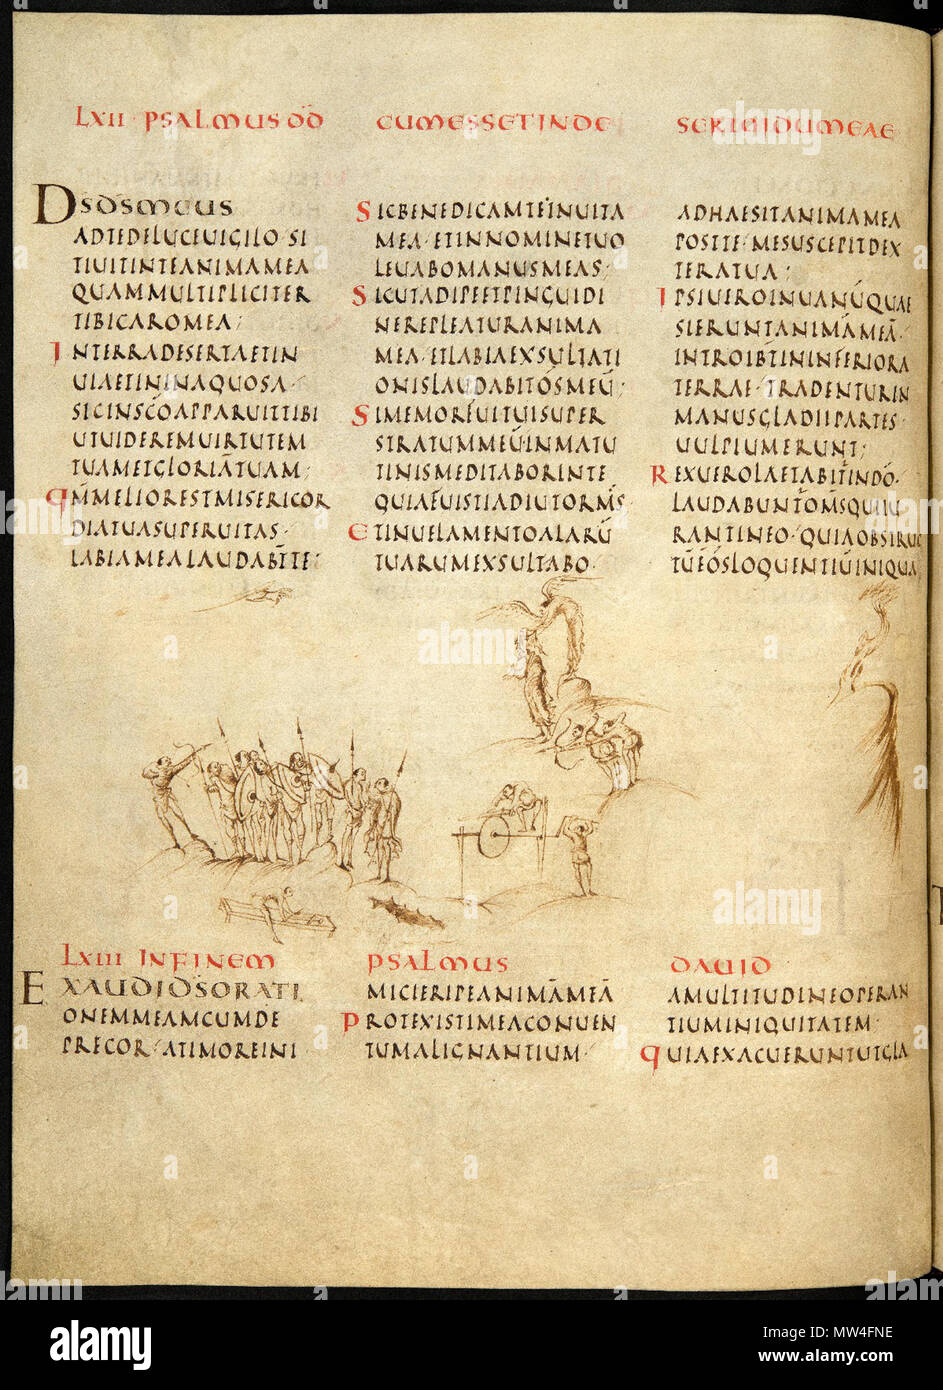 LXII · PSALMUS DD
CUM ESSET IN DE
SERTO IDUMEAE
DSDSMEUS
ADTEDELUCEUIGILO · SI
TIUITINTEANIMAMEA
QUAMMULTIPLICITER
TIBICAROMEA;
INTERRADESERTAETIN
UIAETININAQUOSA ·
SICINSCOAPPARUITIBI
UTUIDEREMUIRTUTEM
TUAMETGLORIĀTUAM;
QM̄MELIORESTMISERICOR
DIATUASUPERUITAS ·
LABIAMEALAUDABT̄TE;
SICBENEDICAMTEINUITA
MEA · ETINNOMINETUO
LEUABOMANUSMEAS;
SICUTADIPEETPINGUIDI
NEREPLEATURANIMA
MEA · ETLABIAEXSULTATI
ONISLAUDABITOSMEŪ;
SIMEMORFUITUISUPER
STRATUMMEŪINMATU
TINISMEDITABORINTE
QUIAFUISTIADIUTORM̄S ·
ETINUELAMENTOALARŪ
TUARUMEXSULTABO ·
ADHAESITANIMAMEA
POSTTE · MESUSCEPITDEX
TERATUA;
IPSIUEROINUANŪQUAE
SIERUNTANIMĀMEĀ ·
INTROIBT̄ININFERIORA
TERRAE · TRADENTURIN
MANUSGLADIIPARTES
UULPIUMERUNT;
REXUEROLAETABITINDO ·
LAUDABUNTOM̄SQUIIU
RANTINEO · QUIAOBSTRUC
TŪĒOSLOQUENTIŪINIQUA
LXIII INFINEM
PSALMUS
DAUID
EXAUDIDSORATI
ONEMMEAMCUMDE
PRECOR · ATIMOREINI
MICIERIPEANIMĀMEĀ
PROTEXISTIMEACONUEN
TUMALIGNANTIUM ·
AMULTITUDINEOPERAN
TIUMINIQUITATEM ·
QUIAEXACUERUNTUTGLA
alamy
alamy
alamy
alamy
alamy
alamy
Image ID: MW4FNE
www.alamy.com